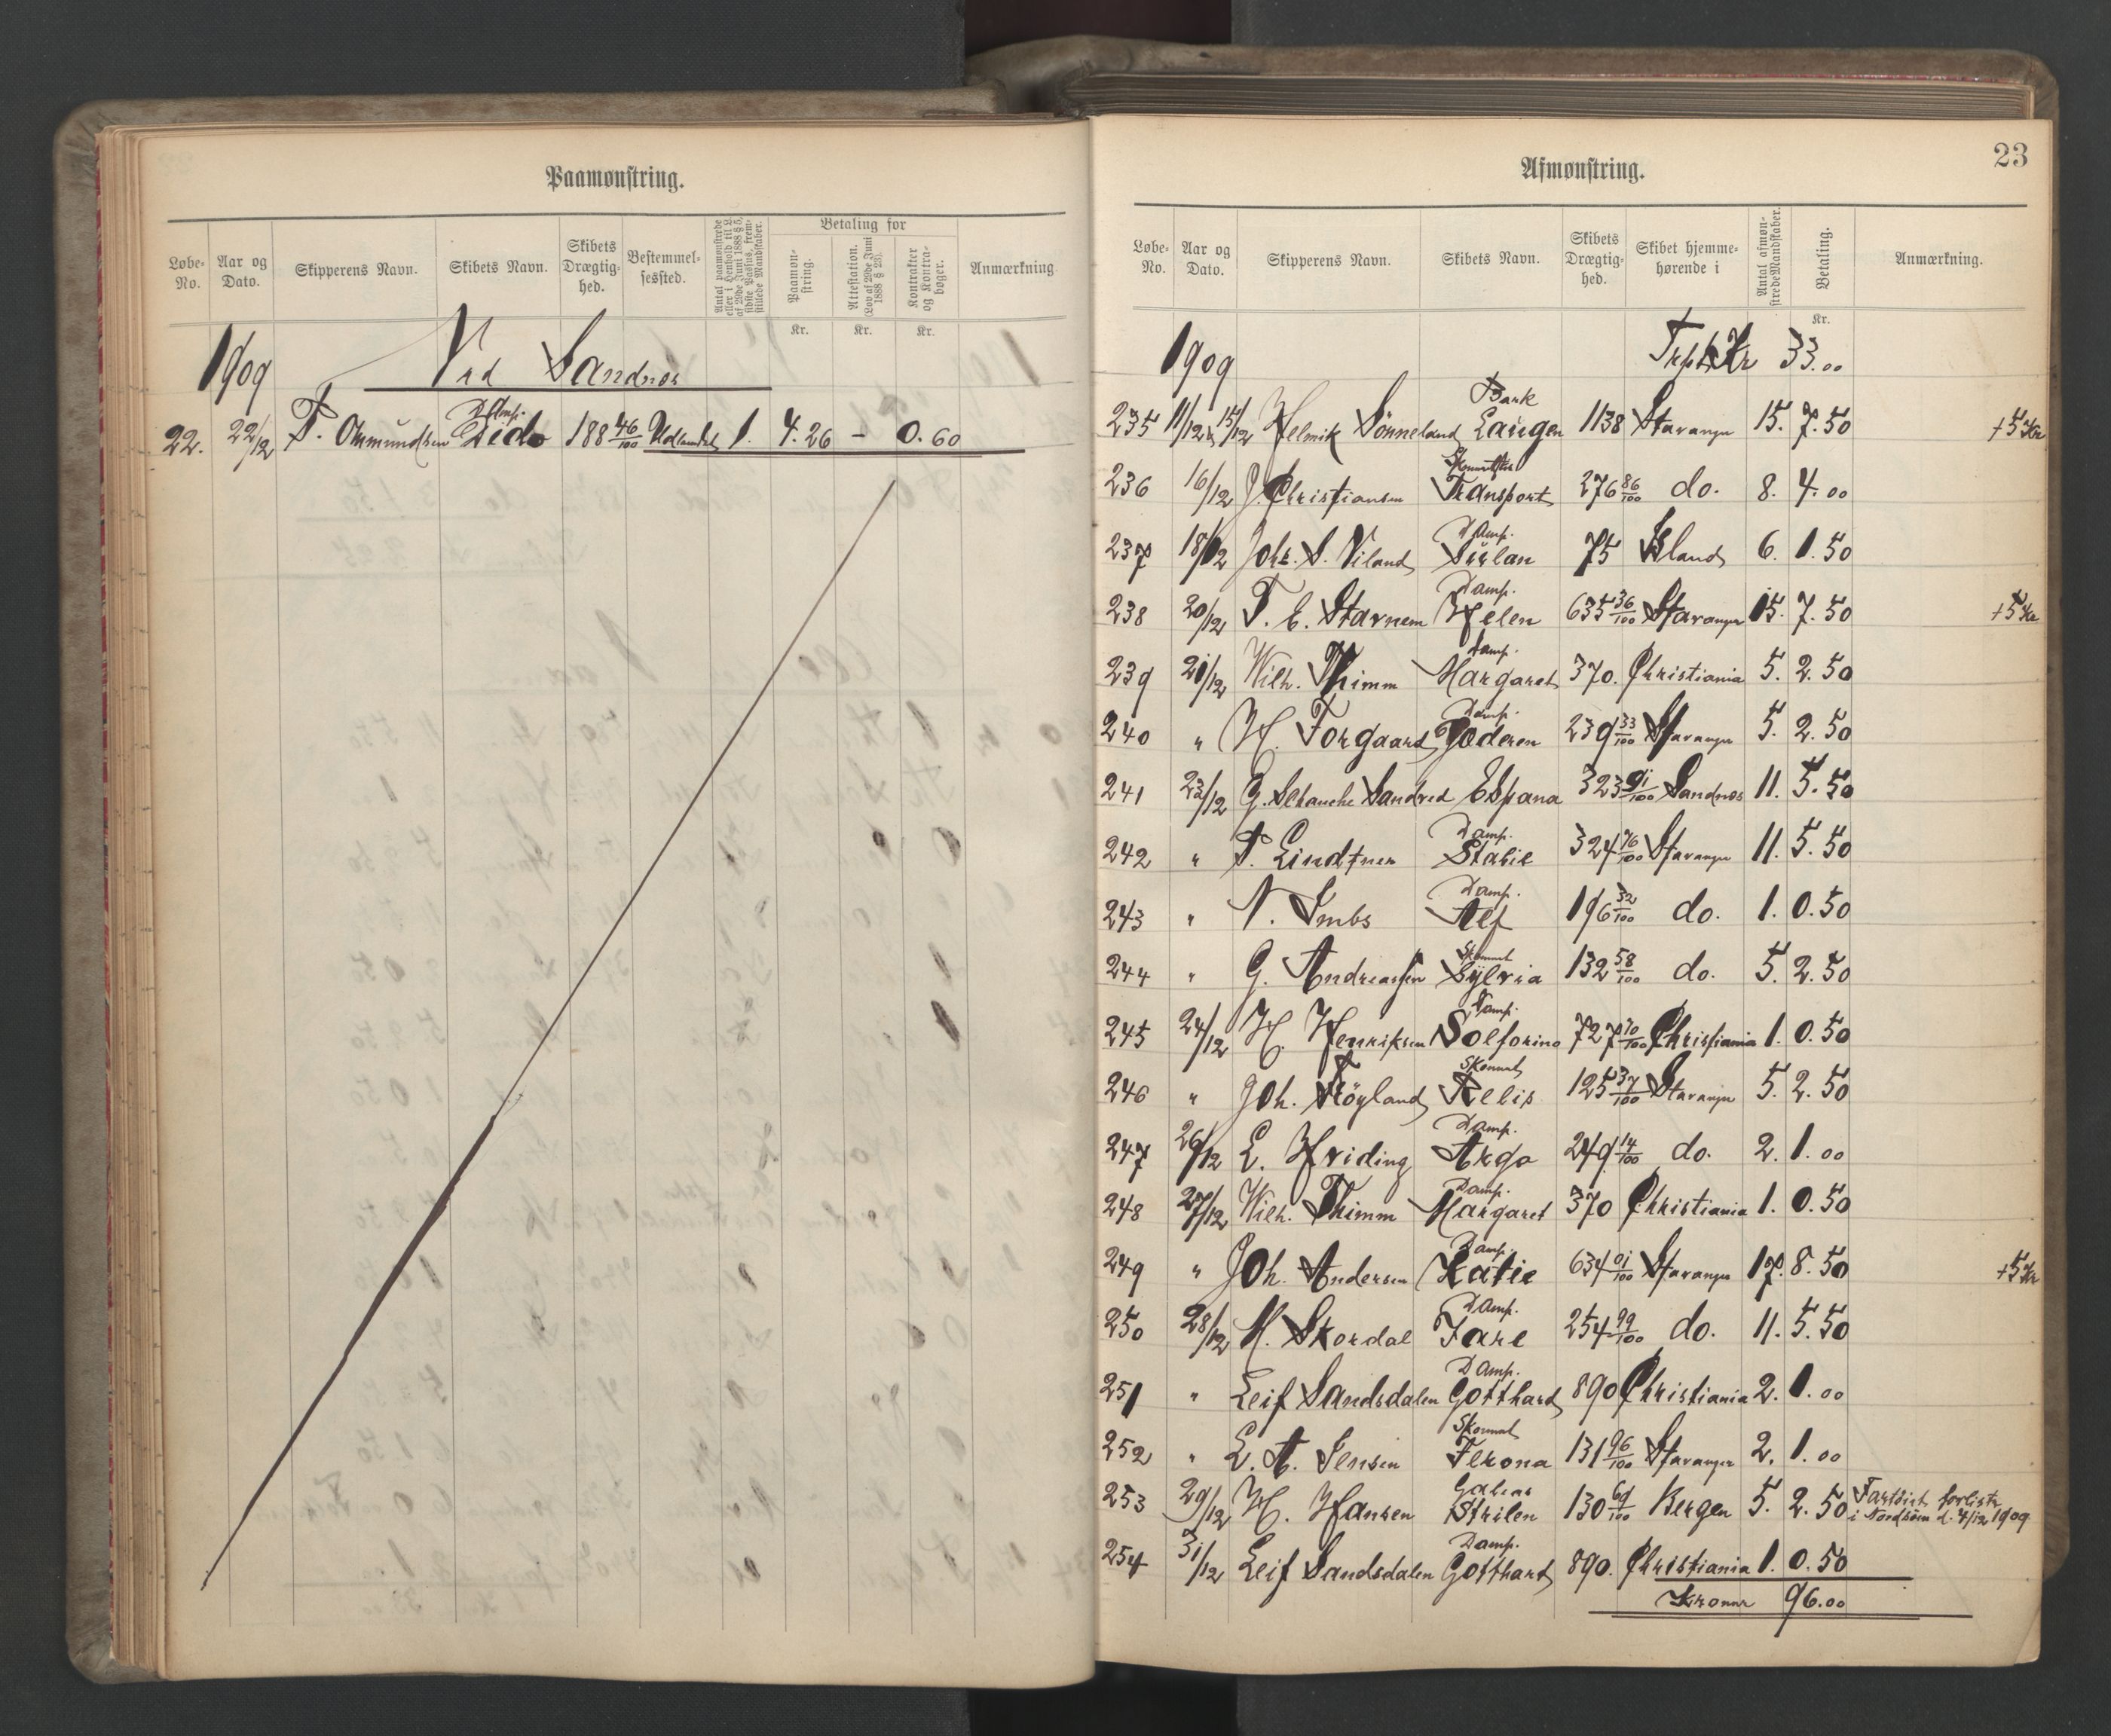 Paamønstring.
Løbe-No.
Aar og Dato.
Skipperens Navn.
Skibets Navn.
Skibets Drægtig-hed.
Bestemmel-sessted.
Antal paamønstrede eller i Henhold til L. af 29de Juni 1888 § 5, sidste Passus, frem-stillede Mandskaber.
Betaling for
Paamøn-string.
Attestation. (Lov af 29de Juni 1888 § 25).
Kontrakter og Kontra-bøger.
Anmærkning
Kr. Kr. Kr.
1909 Ved Sandnes
Damp.
22. 22/12 T. Omundsen Dido 188 46/100 Udlandet 1. 4.26 – 0.60
23
Afmønstring.
Løbe-No.
Aar og Dato.
Skipperens Navn.
Skibets Navn.
Skibets Drægtig-hed.
Skibet hjemme-hørende i
Antal afmøn-strede Mandskaber.
Betaling.
Anmærkning.
Kr.
1909 Trpt Kr 33.00
Bark
235 11/12 & 15/12 Helmik Sønneland Laugen 1138 Stavanger 15. 7.50 +5 Kr
236 16/12 J. Christiansen Transport 276 86/100 do. 8. 4.00
Damp.
237 18/12 Johs. S. Viland Sülan 75 Island 6. 1.50
Damp.
238 20/12 T. E. Starnem Helen 635 36/100 Stavanger 15. 7.50 +5 Kr
Damp.
239 21/12 Wilh. Thimm Margaret 370. Christiania 5. 2.50
Damp.
240 " H. Torgaard Jæderen 239 33/100 Stavanger 5. 2.50
241 23/12 G. Schanche Sandved España 323 91/100 Sandnes 11. 5.50
Damp.
242 " P. Lindtner Stabil 324 76/100 Stavanger 11. 5.50
Damp.
243 " N. Imbs Alf 196 32/100 do. 1. 0.50
Skonnert
244 " G. Andreassen Sylvia 132 58/100 do. 5. 2.50
Damp.
245 24/12 H. Henriksen Solforino 727 70/100 Christiania 1. 0.50
Skonnert
246 " Joh. Høyland Relis 125 37/100 Stavanger 5. 2.50
Damp.
247 26/12 L. Hviding Argo 249 14/100 do. 2. 1.00
Damp.
248 27/12 Wilh. Thimm Margaret 370 Christiania 1. 0.50
Damp.
249 " Joh. Andersen Katie 634 01/100 Stavanger 17. 8.50 +5 Kr
Damp.
250 28/12 M. Skordal Jarl 254 99/100 do. 11. 5.50
Damp.
251 " Leif Sandsdalen Gotthard 890 Christiania 2. 1.00
Skonnert
252 " L. A. Jensen Ferona 131 96/100 Stavanger 2. 1.00
Galeas
253 29/12 H. Hansen Strilen 130 69/100 Bergen 5. 2.50 Fartøiet forliste
i Nordsøen d. 4/12 1909
Damp.
254 31/12 Leif Sandsdalen Gotthard 890. Christiania 1. 0.50
Kroner 96.00